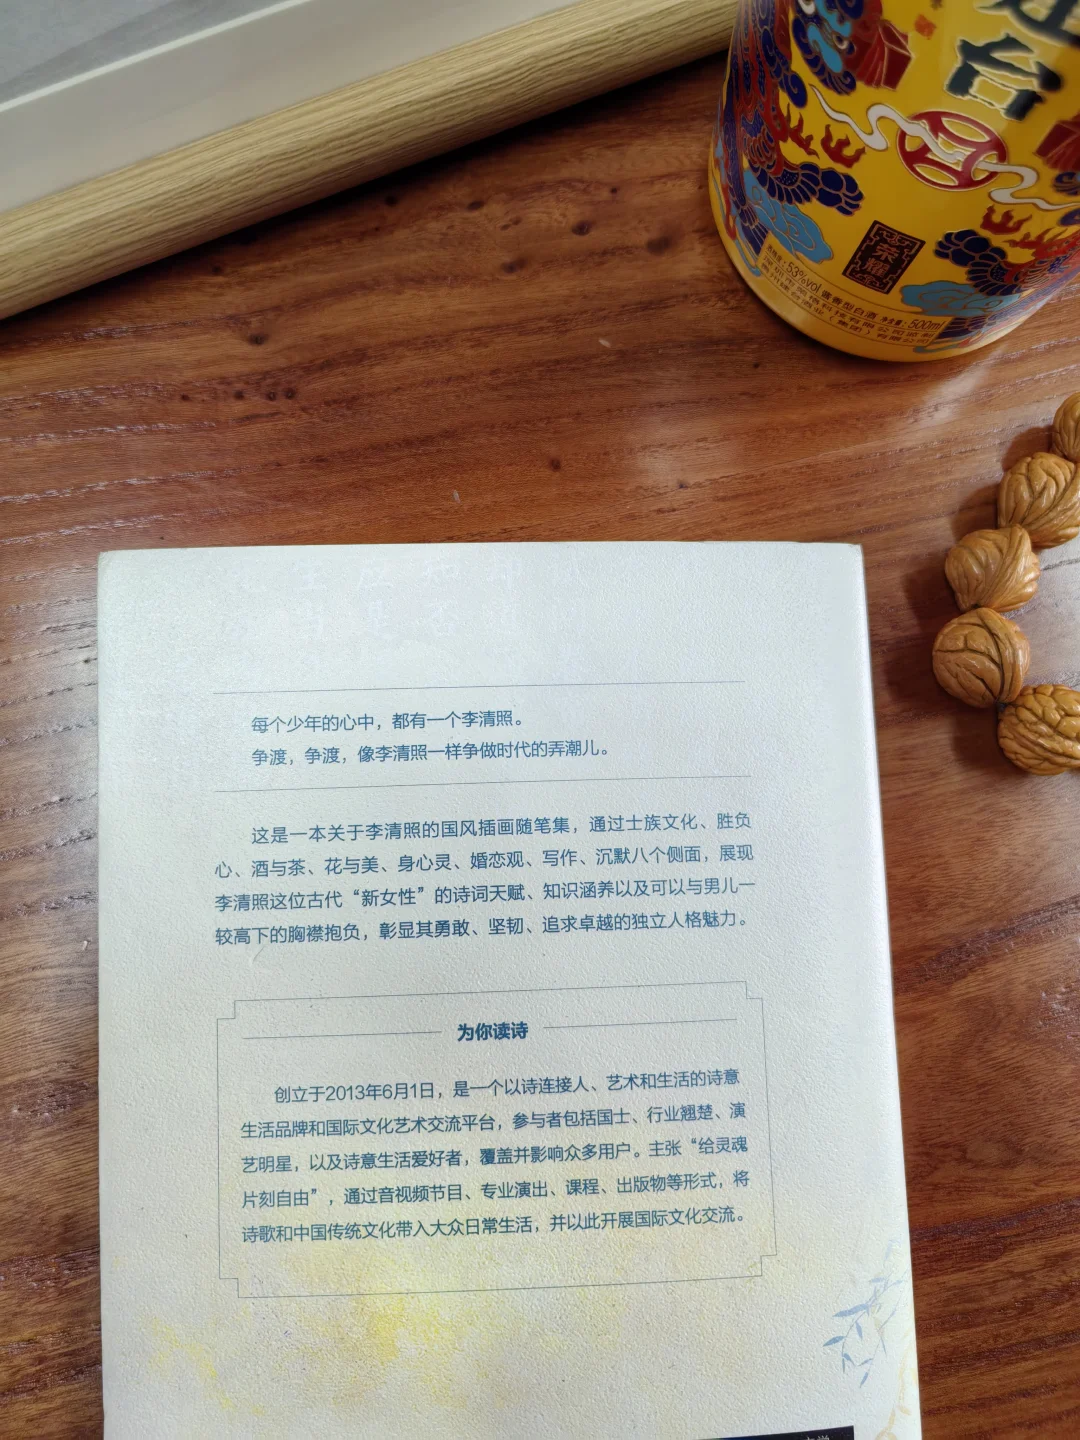 台
荣耀
53%vol 酱香型白酒 净含量：500ml
每个少年的心中，都有一个李清照。
争渡，争渡，像李清照一样争做时代的弄潮儿。
这是一本关于李清照的国风插画随笔集，通过士族文化、胜负
心、酒与茶、花与美、身心灵、婚恋观、写作、沉默八个侧面，展现
李清照这位古代“新女性”的诗词天赋、知识涵养以及可以与男儿一
较高下的胸襟抱负，彰显其勇敢、坚韧、追求卓越的独立人格魅力。
为你读诗
创立于2013年6月1日，是一个以诗连接人、艺术和生活的诗意
生活品牌和国际文化艺术交流平台，参与者包括国士、行业翘楚、演
艺明星，以及诗意生活爱好者，覆盖并影响众多用户。主张“给灵魂
片刻自由”，通过音视频节目、专业演出、课程、出版物等形式，将
诗歌和中国传统文化带入大众日常生活，并以此开展国际文化交流。